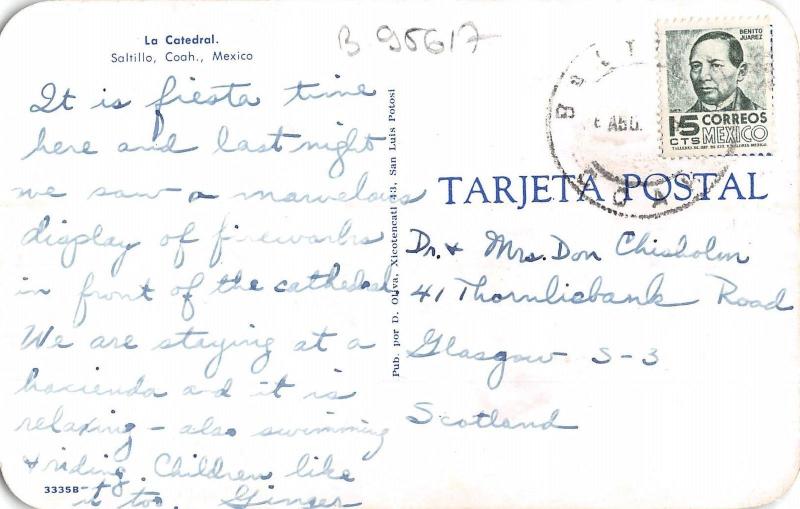 La Catedral.
Saltillo, Coah., Mexico
B 95617
It is fiesta time
here and last night
we saw a marvelous
display of fireworks
in front of the cathedral
We are staying at a
hacienda and it is
relaxing - also swimming
& riding. Children like
it too. Ginger
3335B
Pub. por D. Oliva, Xicotencatl 43, San Luis Potosi
BENITO
JUAREZ
15 CORREOS
CTS MEXICO
AGO.
TARJETA POSTAL
Dr. & Mrs. Don Chisholm
41 Thornliebank Road
Glasgow S-3
Scotland